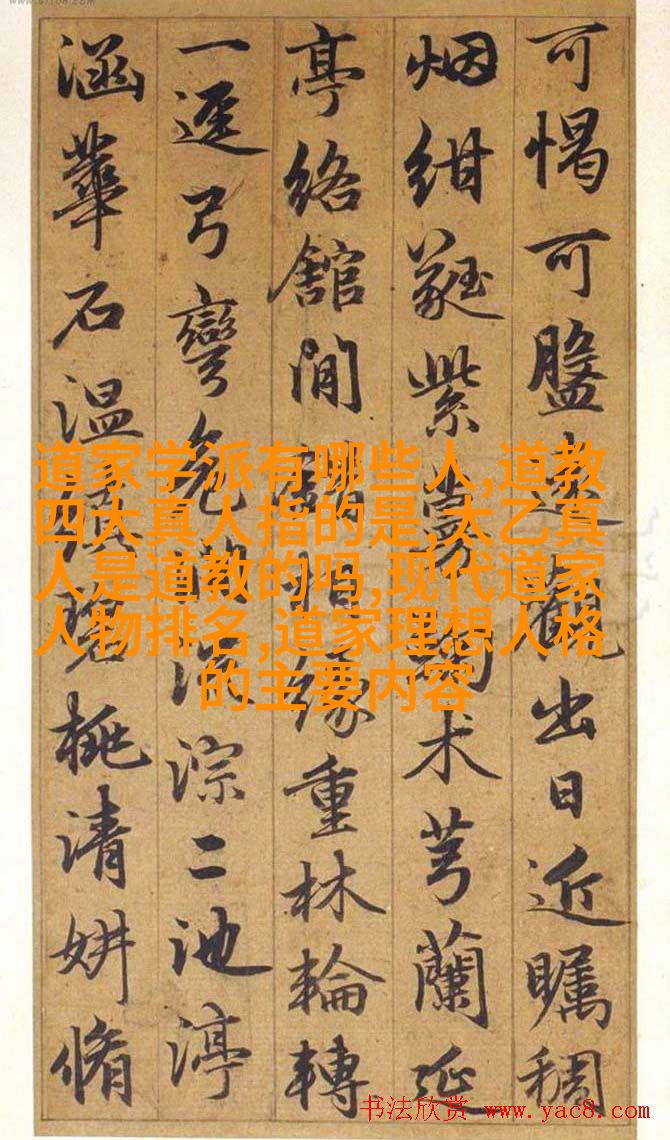 可愒可盥遠觀出日近矚稠
烟紺蕤紫术芎蘭延
亭絡館閒緣重林輪轉
一逕弓彎淙二池渟
涵華石温桃清妍脩
道家学派有哪些人,道教
四大真人指的是,太乙真
人是道教的吗,现代道家
人物排名,道家理想人格
的主要内容
书法欣赏 www.yac8.com